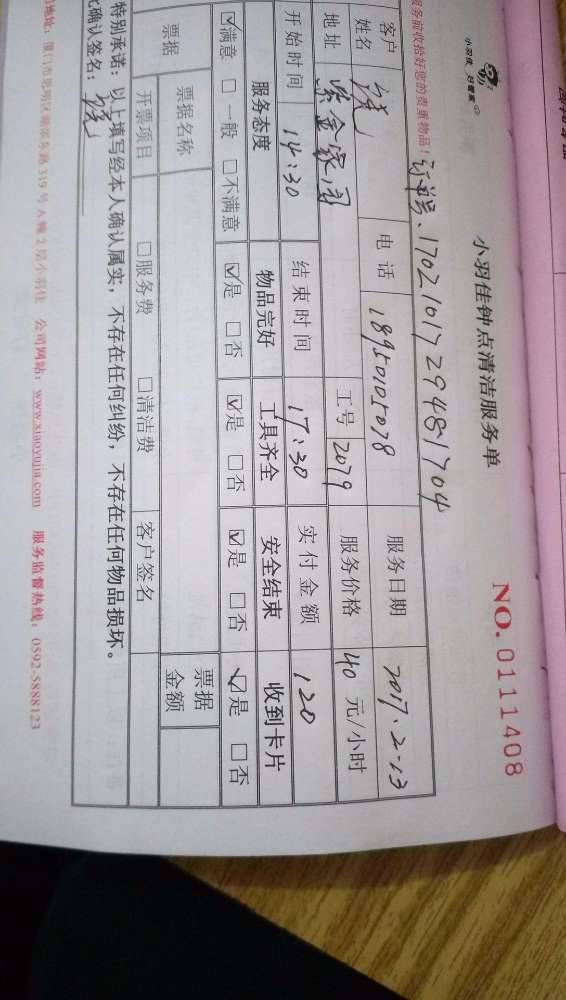 小羽佳 好管家
小羽佳钟点清洁服务单
NO. 0111408
服务前收拾好您的贵重物品！
订单号、1702101729481704
客户姓名 电话 18950105078 服务日期 2017.2.13
地址 紫金家园 工号 2079 服务价格 40 元/小时
开始时间 14:30 结束时间 17:30 实付金额 120
服务态度 物品完好 工具齐全 安全结束 收到卡片
☑满意 □一般 □不满意 ☑是 □否 ☑是 □否 ☑是 □否 ☑是 □否
票据 票据名称 票据金额
开票项目 □服务费 □清洁费 客户签名
特别承诺：以上填写经本人确认属实，不存在任何纠纷，不存在任何物品损坏。
确认签名：
地址：厦门市思明区湖滨东路319号A幢2层小羽佳 公司网站：www.xiaoyujia.com 服务监督热线：0592-5888123